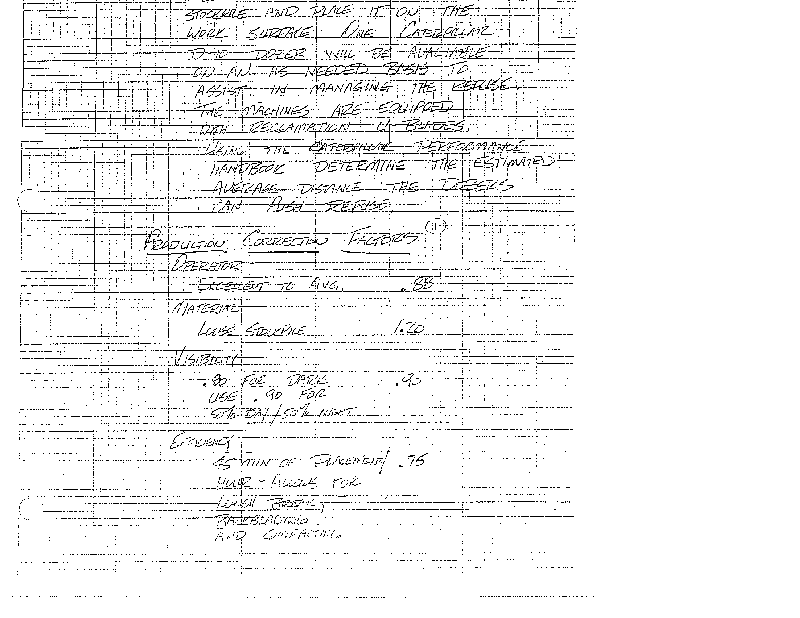 STOCKPILE AND PLACE IT ON THE
WORK SURFACE. ONE CATERPILLAR
DOZER WILL BE AVAILABLE
ON AN AS NEEDED BASIS TO
ASSIST IN MANAGING THE REFUSE.
THE MACHINES ARE EQUIPPED
WITH RECLAMATION U-BLADES.
USING THE CATERPILLAR PERFORMANCE
HANDBOOK DETERMINE THE ESTIMATED
AVERAGE DISTANCE THE DOZERS
CAN PUSH REFUSE.
PRODUCTION CORRECTION FACTORS
OPERATOR
EXCELLENT TO AVG. .88
MATERIAL
LOOSE STOCKPILE 1.20
VISIBILITY
.80 FOR DARK .90
USE .90 FOR
50% DAY/50% NIGHT
EFFICIENCY
45 MIN OF PLACEMENT/ .75
HOUR - ALLOW FOR
LUNCH BREAK,
BACKBLADING
AND COMPACTING.